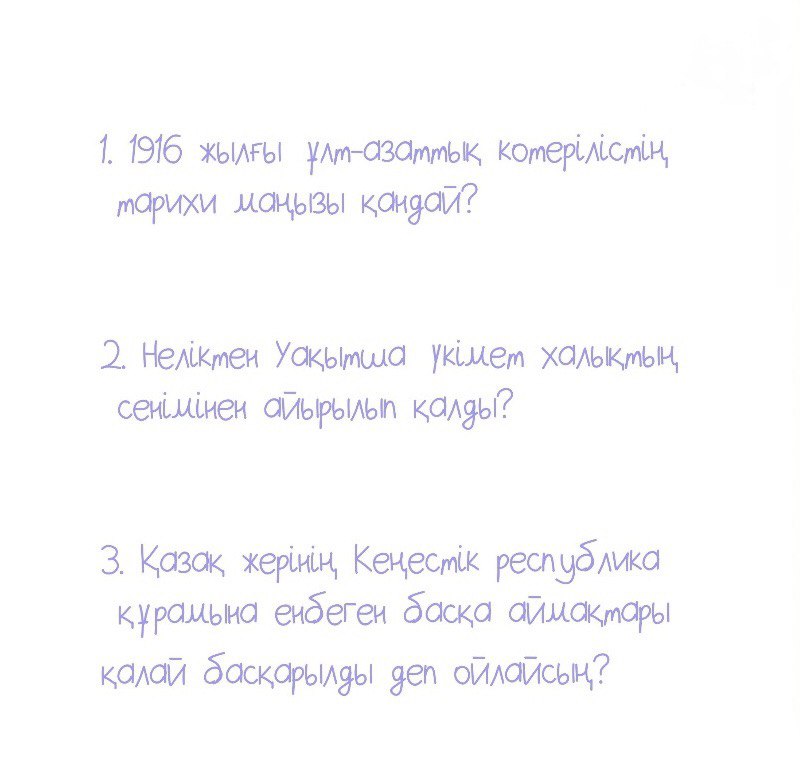 1. 1916 жылғы ұлт-азаттық котерілістің
тарихи маңызы қандай?
2. Неліктен Уақытша үкімет халықтың
сенімінен айырылып қалды?
3. Қазақ жерінің Кеңестік республика
құрамына енбеген басқа аймақтары
қалай басқарылды деп ойлайсың?